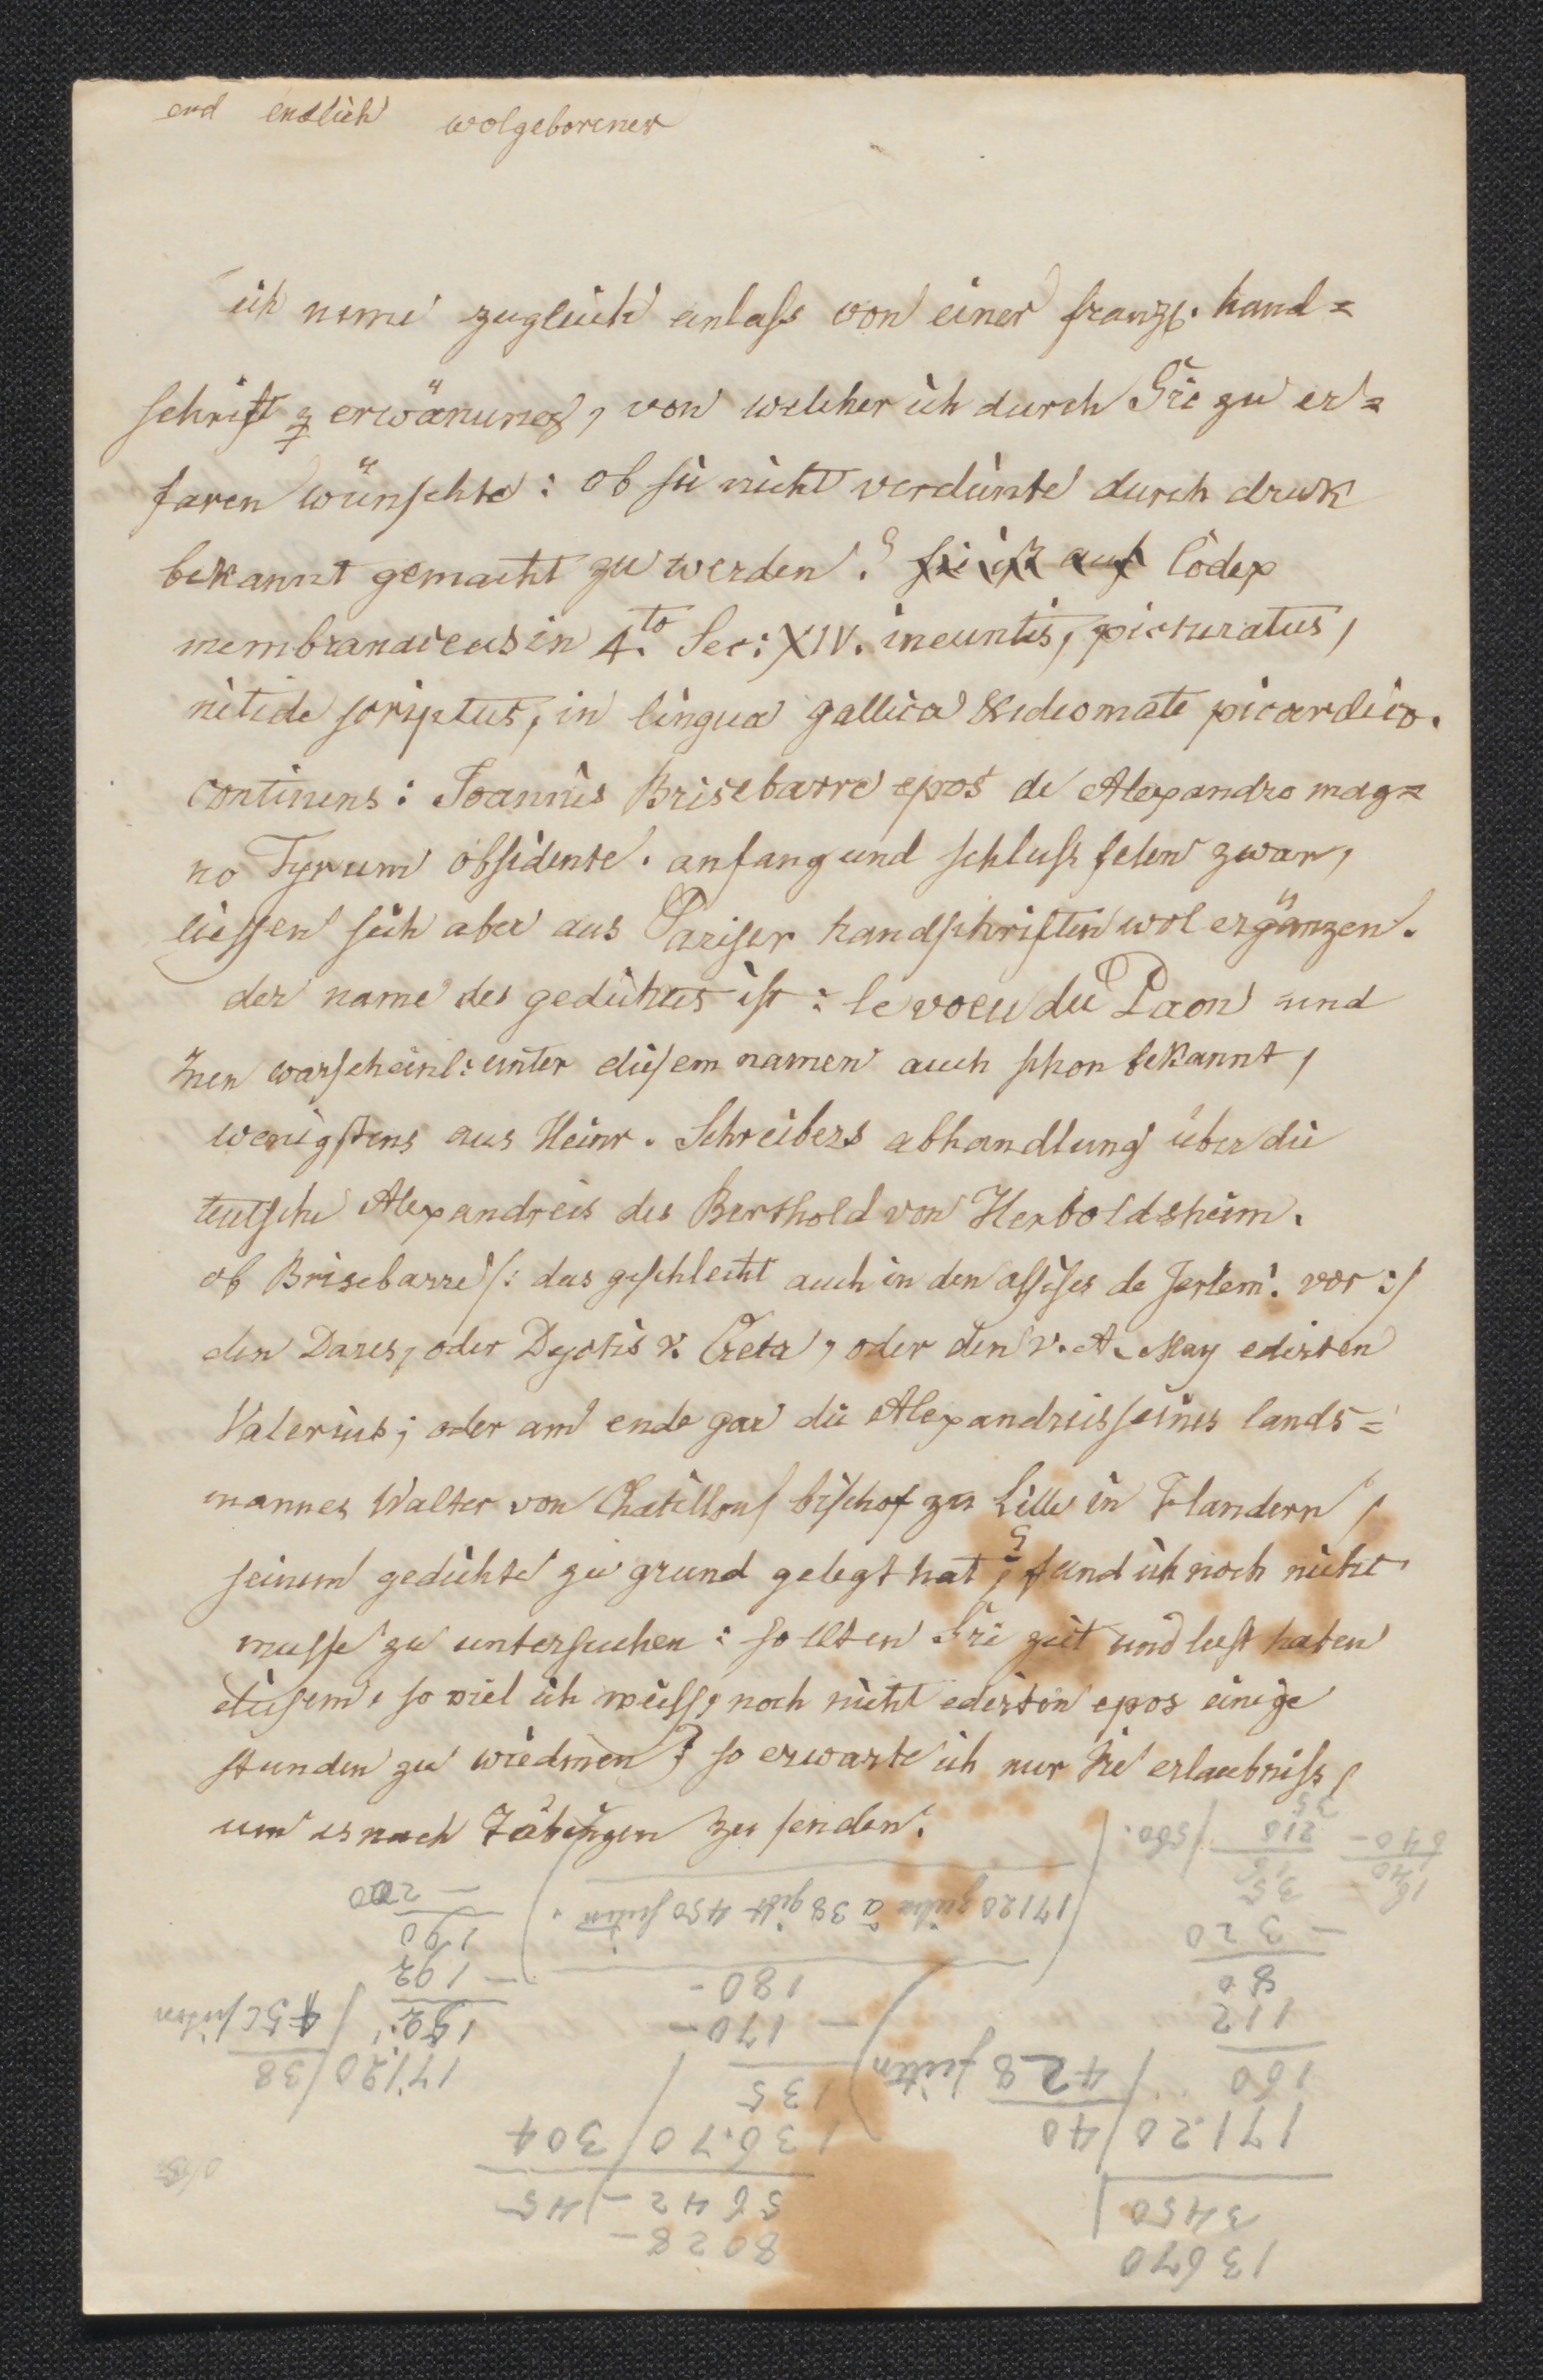 und endlich wolgeborener
ich neme zugleich anlass von einer franzs. hand=
schrift z erwänung, von welcher ich durch Sie zu er=
faren wünschte: ob sie nicht verdiente durch druk
bekannt gemacht zu werden? sie ist auf Codex
membranaceus in 4.to Sec: XIV. ineuntis, picturatus,
nitide scriptus, in lingua gallica & idiomate picardico.
continens: Joannis Brisebarre epos de Alexandro mag=
no Tyrum obsidente. anfang und schluss felen zwar,
liessen sich aber aus Pariser handschriften wol ergänzen.
der name des gedichtes ist: le voeu du Paon und
Inen warscheinl: unter diesem namen auch schon bekannt,
wenigstens aus Heinr. Schreibers abhandlung über die
teutsche Alexandreis des Berthold von Herboldsheim.
ob Brisebarre /: das geschlecht auch in den assises de Jerlem: vor :/
den Dares, oder Dyctis v. Creta, oder den v. A. May edirten
Valerius; oder am ende gar die Alexandreis seines lands=
mannes Walter von Chatillon / bischof zu Lille in Flandern /
seinem gedichte zu grund gelegt hat, fand ich noch nicht
musse zu untersuchen: sollten Sie zeit und lust haben
diesem, so viel ich weiss, noch nicht edirten epos einige
stunden zu wiedmen? so erwarte ich nur Ire erlaubniss,
um es nach Tübingen zu senden.
13670
3450
17120/40
428 seiten
160
112
80
320
8028-
5642-/45-
13670/304
135
170-
180-
17120 zeilen à 38 gibt 450 seiten.
17120/38
450 seiten
152
192
190
-200
35
210
/560.
640-